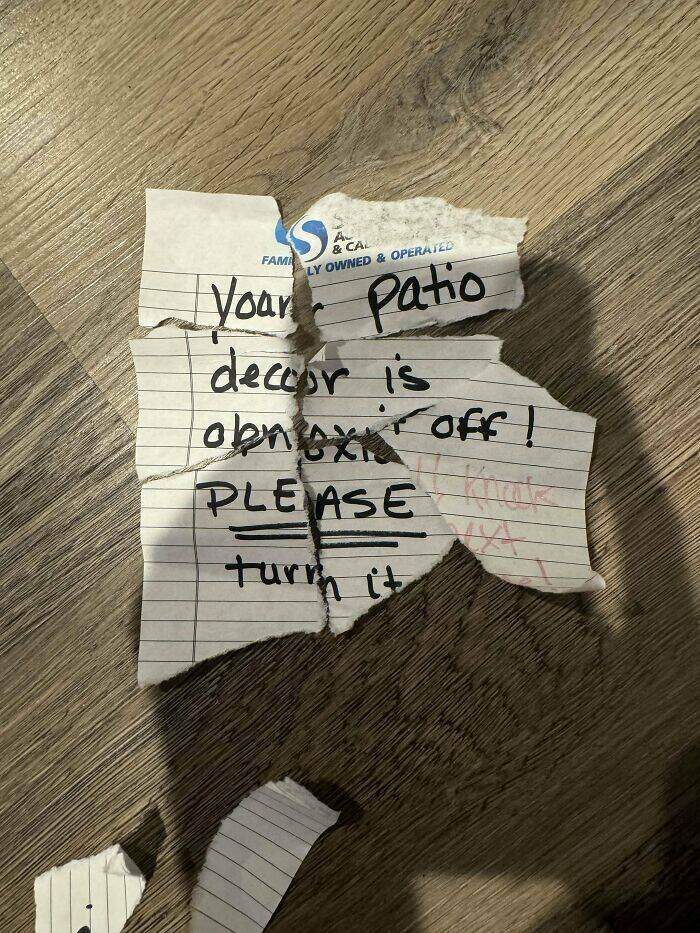 FAMILY OWNED & OPERATED
Your Patio
decor is
obnoxi off!
PLEASE
turn it
knock
next